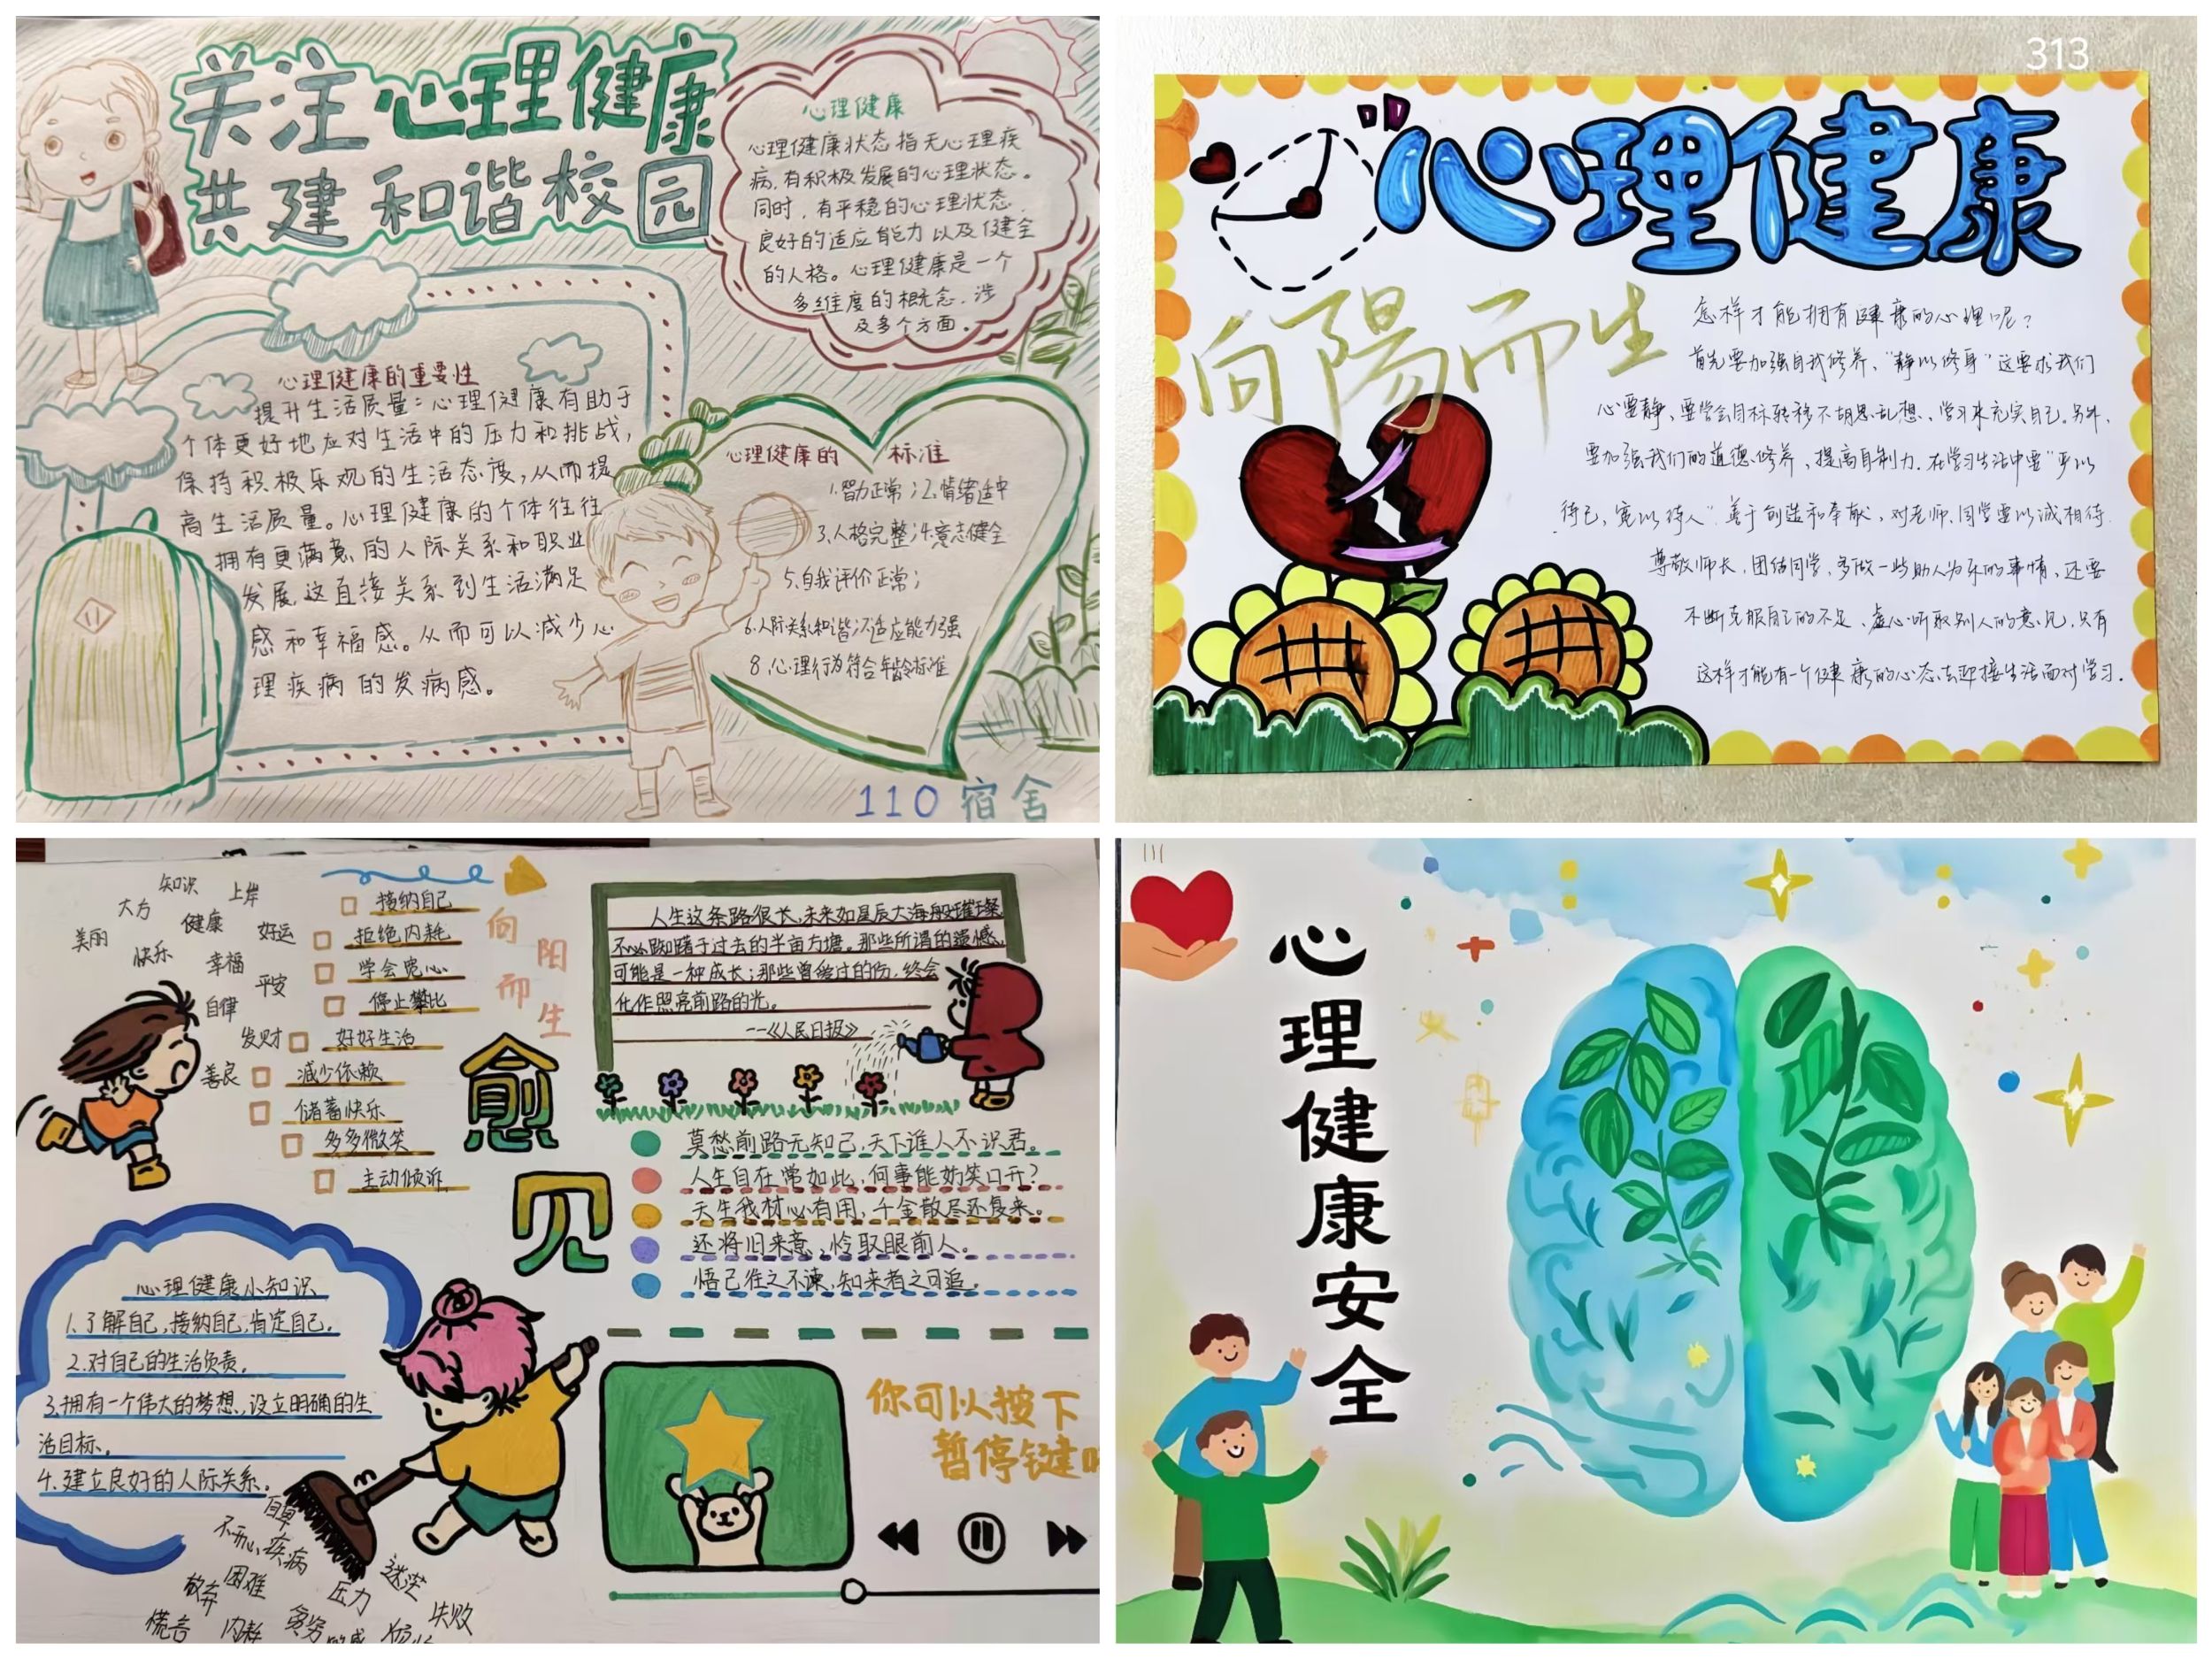 关注心理健康
共建和谐校园
心理健康
心理健康状态指无心理疾
病,有积极发展的心理状态。
同时,有平稳的心理状态,
良好的适应能力以及健全
的人格。心理健康是一个
多维度的概念,涉
及多个方面。
心理健康的重要性
提升生活质量:心理健康有助于
个体更好地应对生活中的压力和挑战,
保持积极乐观的生活态度,从而提
高生活质量。心理健康的个体往往
拥有更满意的人际关系和职业
发展,这直接关系到生活满足
感和幸福感。从而可以减少心
理疾病的发病感。
心理健康的 标准
1.智力正常;2.情绪适中
3.人格完整;4.意志健全
5.自我评价正常;
6.人际关系和谐;7.适应能力强
8.心理行为符合年龄标准
110宿舍
313
心理健康
向陽而生
怎样才能拥有健康的心理呢?
首先要加强自我修养,“静以修身”这要求我们
心要静,要学会目标转移不胡思乱想,学习来充实自己。另外,
要加强我们的道德修养,提高自制力.在学习生活中要“严以
待己,宽以待人”.善于创造和奉献,对老师、同学要以诚相待.
尊敬师长,团结同学,多做一些助人为乐的事情,还要
不断克服自己的不足,虚心听取别人的意见,只有
这样才能有一个健康的心态去迎接生活面对学习.
知识
上岸
大方
健康
好运
美丽
快乐
幸福
平安
自律
发财
善良
接纳自己
拒绝内耗
学会宽心
停止攀比
好好生活
减少依赖
储蓄快乐
多多微笑
主动倾诉
向阳而生
愈见
人生这条路很长,未来如星辰大海般璀璨,
不必踟蹰于过去的半亩方塘。那些所谓的遗憾,
可能是一种成长;那些曾受过的伤,终会
化作照亮前路的光。
--《人民日报》
莫愁前路无知己,天下谁人不识君。
人生自在常如此,何事能妨笑口开?
天生我材必有用,千金散尽还复来。
还将旧来意,怜取眼前人。
悟已往之不谏,知来者之可追。
心理健康小知识
1.了解自己,接纳自己,肯定自己。
2.对自己的生活负责。
3.拥有一个伟大的梦想,设立明确的生
活目标。
4.建立良好的人际关系。
自卑
不开心
疾病
放弃
困难
压力
迷茫
谎言
内耗
贫穷
失败
你可以按下
暂停键
111
心理健康安全